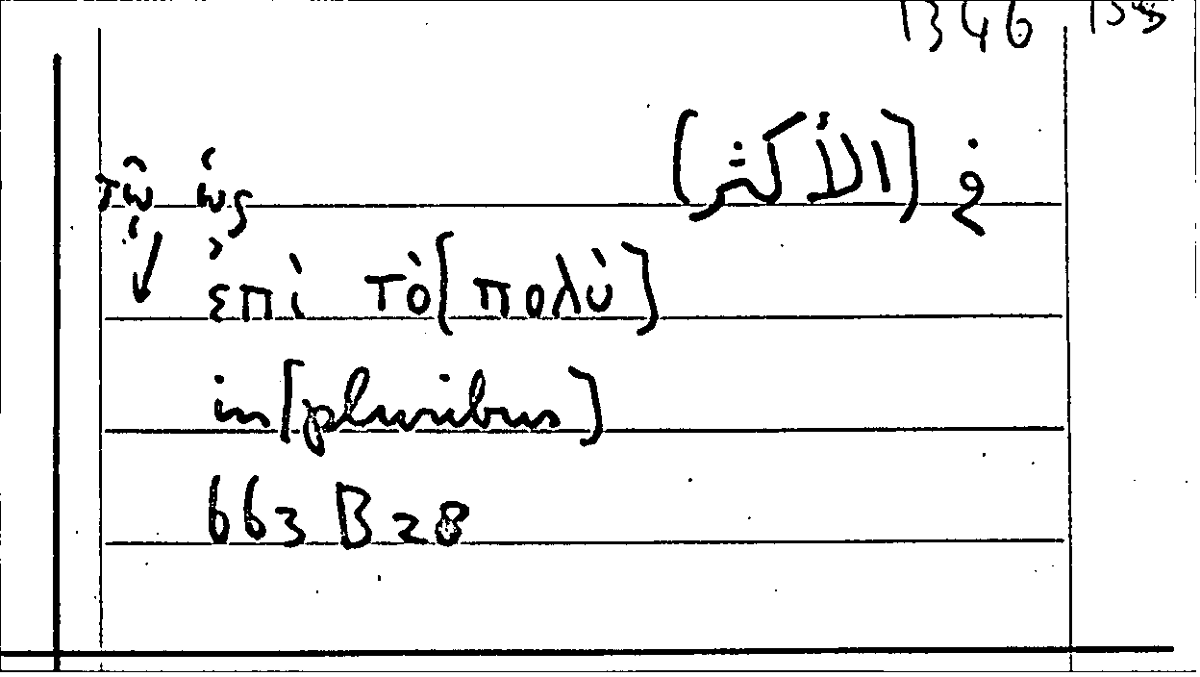 1346
في [الأكثر]
τῷ ὡς
ἐπὶ τὸ [πολὺ]
in [pluribus]
663 B 28